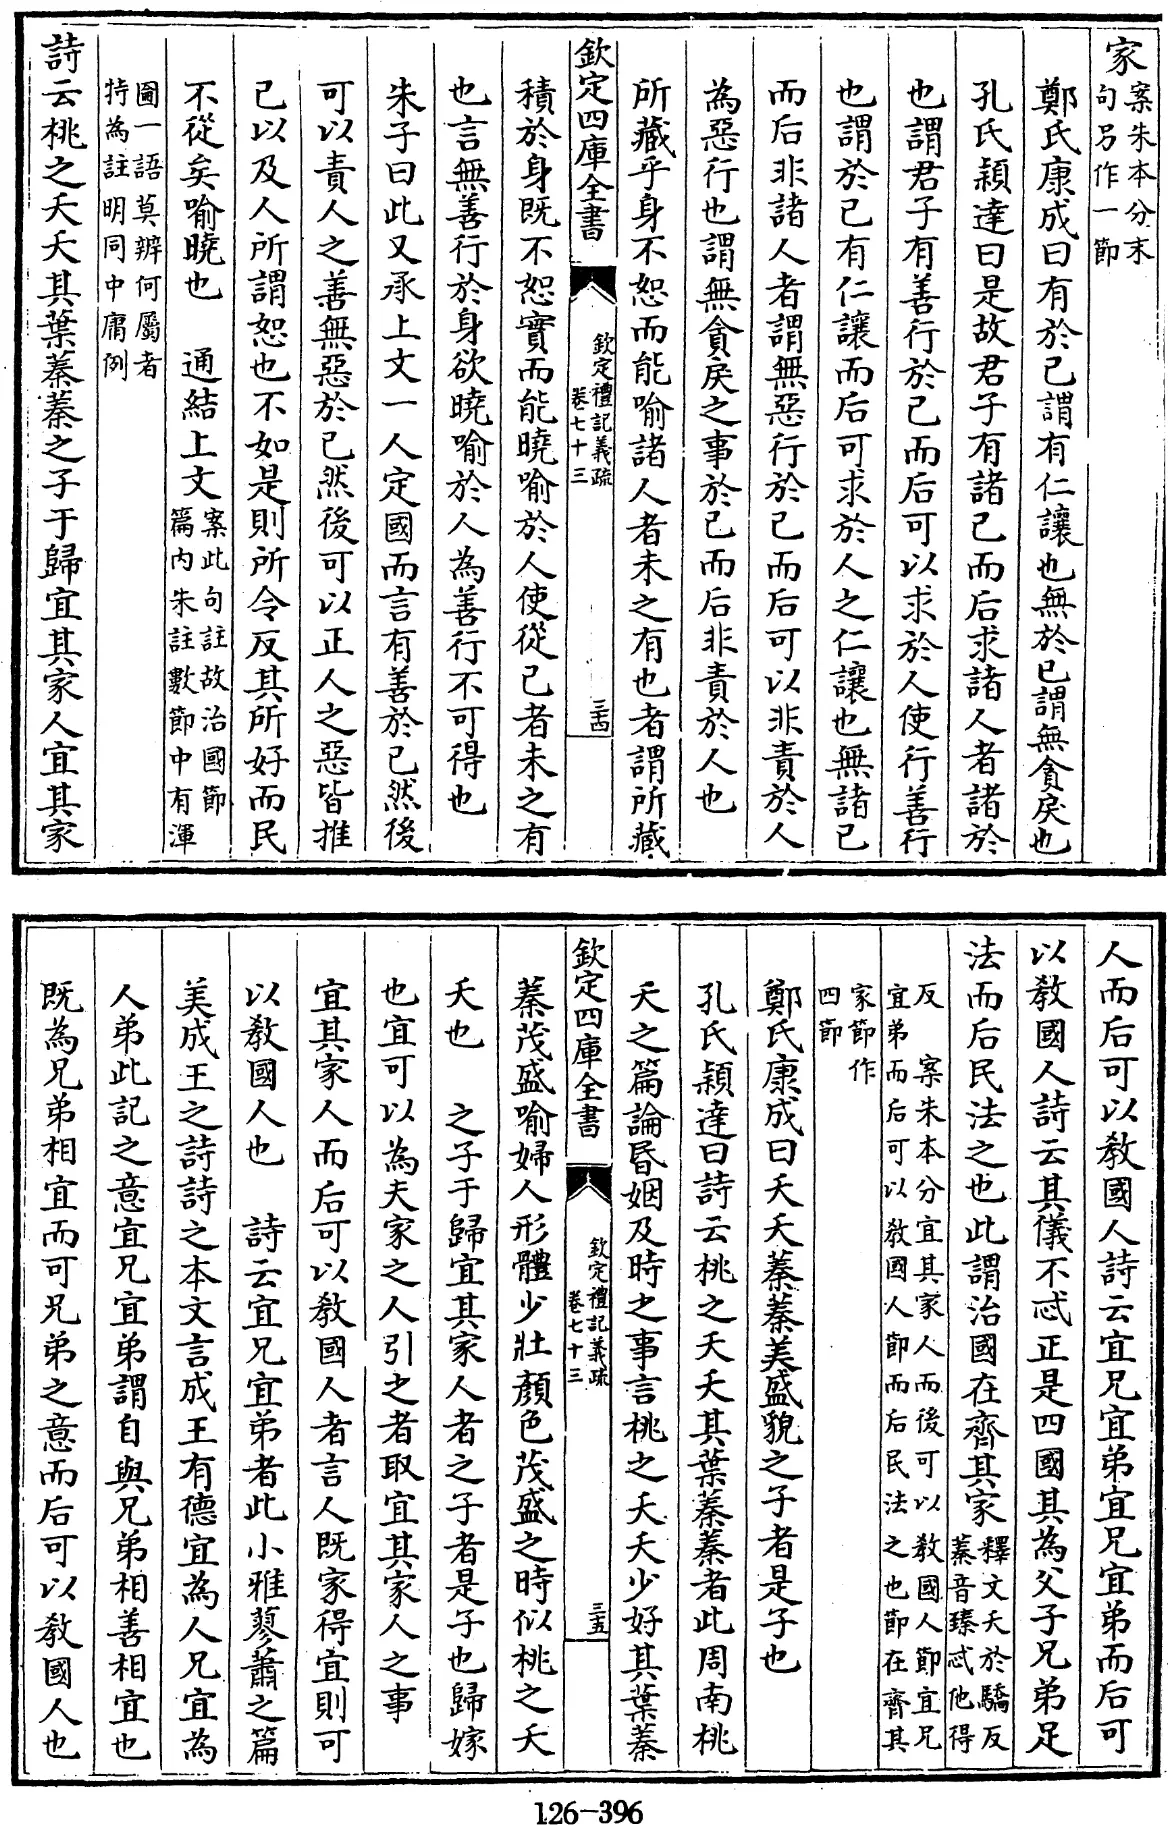 家案朱本分末句另作一節
鄭氏康成曰有於己謂有仁讓也無於己謂無貪戾也
孔氏穎達曰是故君子有諸己而后求諸人者諸於
也謂君子有善行於己而后可以求於人使行善行
也謂於己有仁讓而后可求於人之仁讓也無諸己
而后非諸人者謂無惡行於己而后可以非責於人
為惡行也謂無貪戾之事於己而后非責於人也
所藏乎身不恕而能喻諸人者未之有也者謂所藏
欽定四庫全書
欽定禮記義疏
卷七十三
三四
積於身既不恕實而能曉喻於人使從己者未之有
也言無善行於身欲曉喻於人為善行不可得也
朱子曰此又承上文一人定國而言有善於己然後
可以責人之善無惡於己然後可以正人之惡皆推
己以及人所謂恕也不如是則所令反其所好而民
不從矣喻曉也 通結上文案此句註故治國節篇内朱註數節中有渾
圇一語莫辨何屬者特為註明同中庸例
詩云桃之夭夭其葉蓁蓁之子于歸宜其家人宜其家
人而后可以教國人詩云宜兄宜弟宜兄宜弟而后可
以教國人詩云其儀不忒正是四國其為父子兄弟足
法而后民法之也此謂治國在齊其家釋文夭於驕反蓁音臻忒他得
反 案朱本分宜其家人而後可以教國人節宜兄宜弟而后可以教國人節而后民法之也節在齊其
家節作四節
鄭氏康成曰夭夭蓁蓁美盛貌之子者是子也
孔氏穎達曰詩云桃之夭夭其葉蓁蓁者此周南桃
夭之篇論昏姻及時之事言桃之夭夭少好其葉蓁
欽定四庫全書
欽定禮記義疏
卷七十三
三五
蓁茂盛喻婦人形體少壯顏色茂盛之時似桃之夭
夭也 之子于歸宜其家人者之子者是子也歸嫁
也宜可以為夫家之人引之者取宜其家人之事
宜其家人而后可以教國人者言人既家得宜則可
以教國人也 詩云宜兄宜弟者此小雅蓼蕭之篇
美成王之詩詩之本文言成王有德宜為人兄宜為
人弟此記之意宜兄宜弟謂自與兄弟相善相宜也
既為兄弟相宜而可兄弟之意而后可以教國人也
126-396